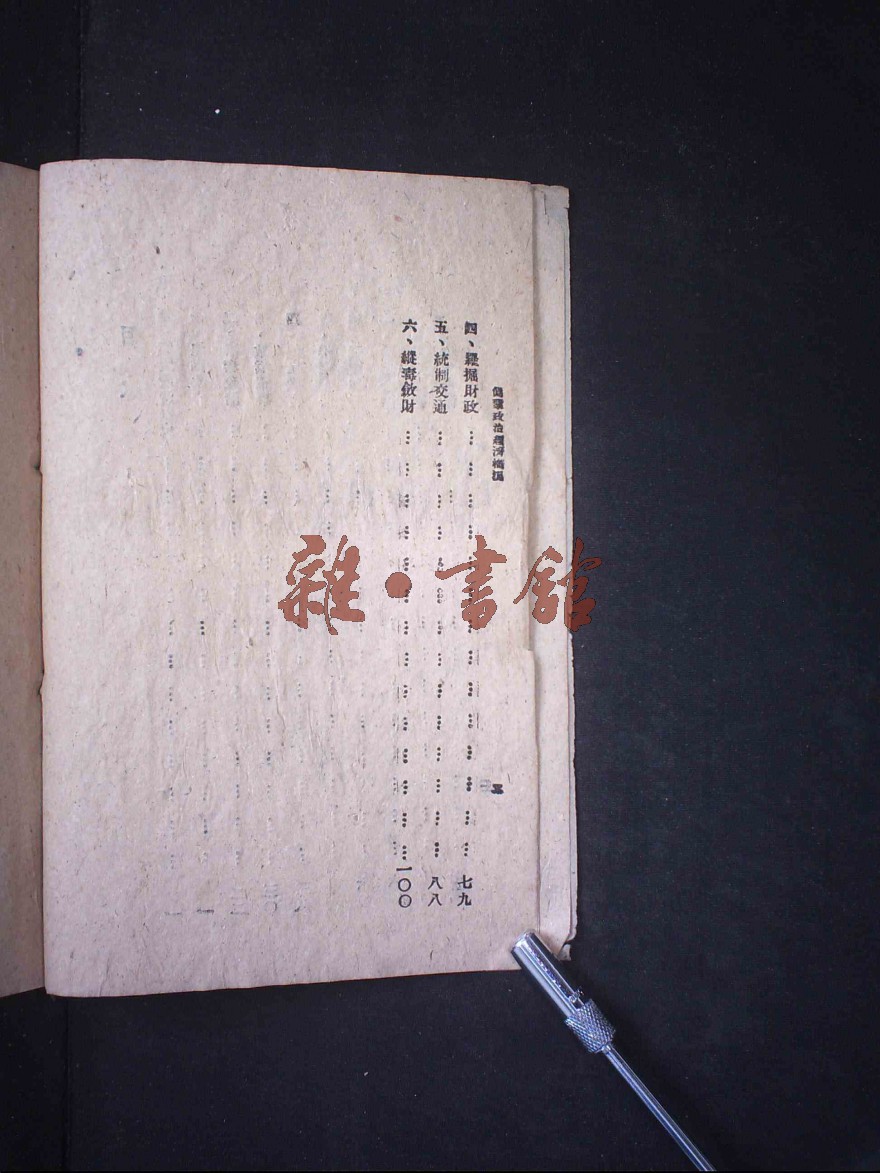 偽蒙政治經濟概況
四、羅掘財政⋯⋯⋯⋯⋯⋯⋯⋯⋯⋯七九
五、統制交通⋯⋯⋯⋯⋯⋯⋯⋯⋯⋯八八
六、縱毒斂財⋯⋯⋯⋯⋯⋯⋯⋯⋯⋯一〇〇
雜·書館